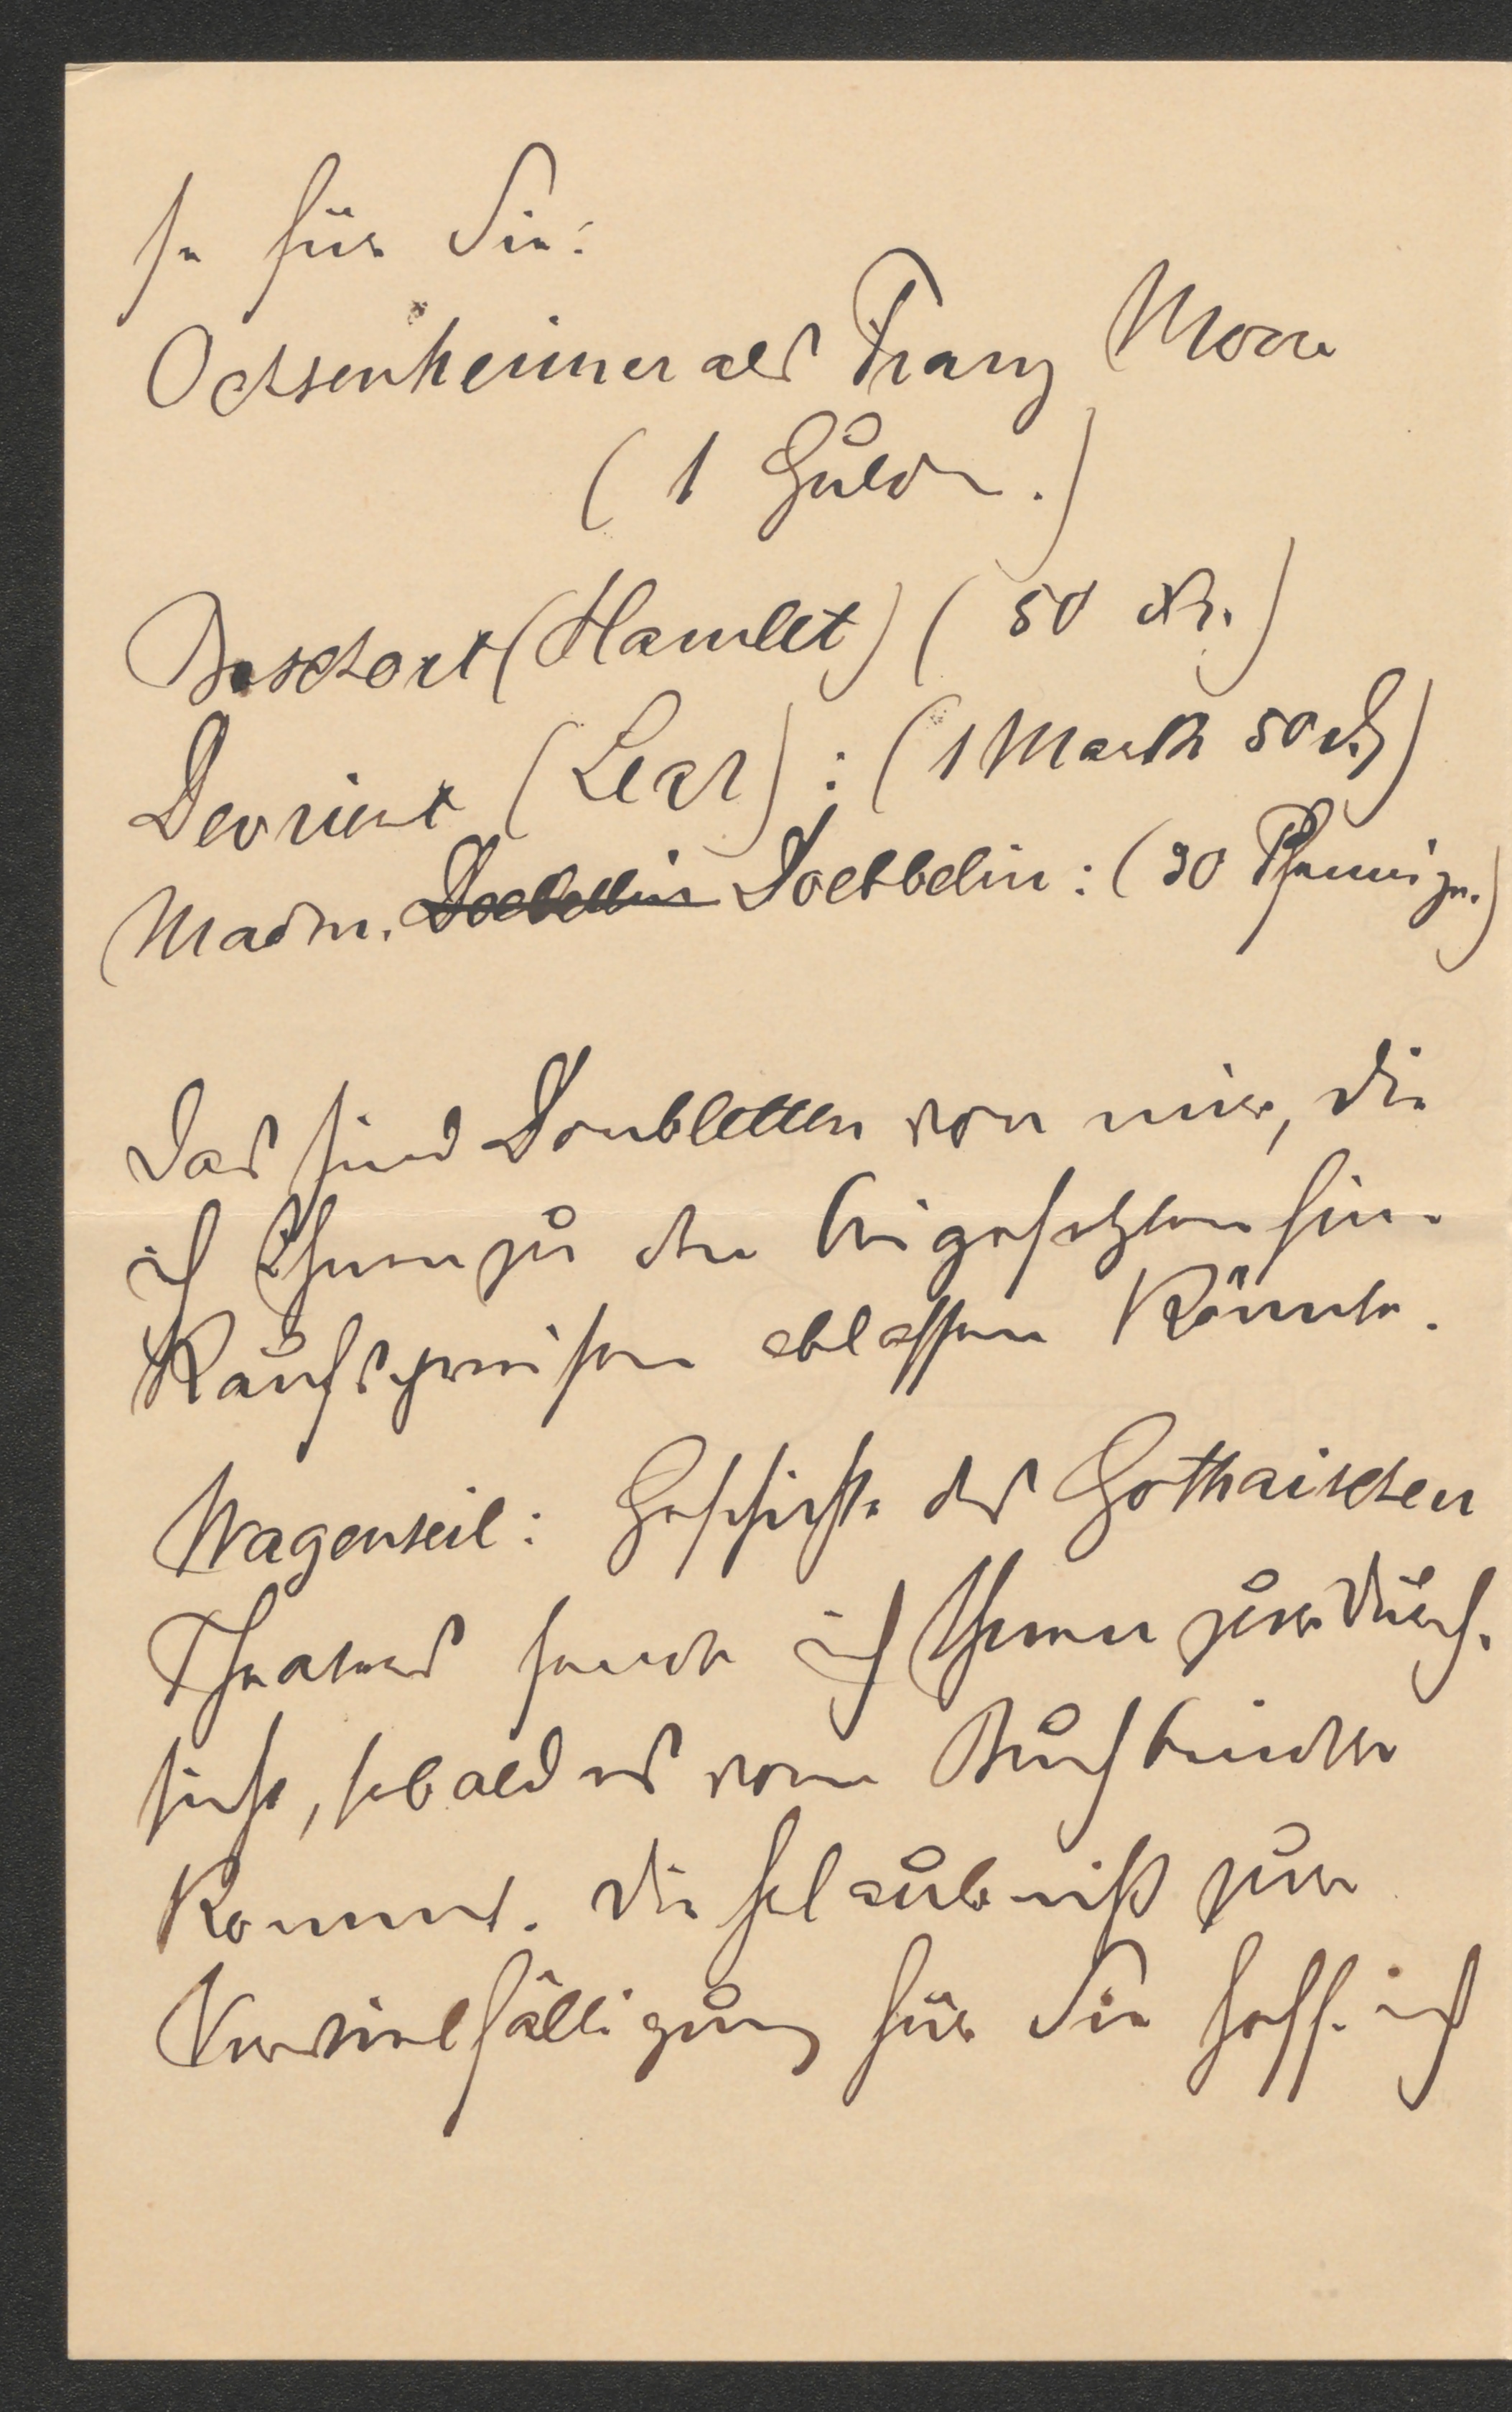 se für Sie:
Ochsenheimer als Franz Moor
(1 Gulden.)
Beschort (Hamlet) (50 Kr.)
Devrient (Lear): (1 Mark 50 ₰)
Madm. Doebbelin: (30 Pfennige.)
Das sind Doubletten von mir, die
ich Ihnen zu den beigesetzten Ein-
kaufspreisen ablassen könnte.
Wagenseil: Geschichte des Gothaischen
Theaters sende ich Ihnen zur Durch-
sicht, sobald es vom Buchbinder
kommt. Die Erlaubniß zur
Vervielfältigung für Sie hoffe ich